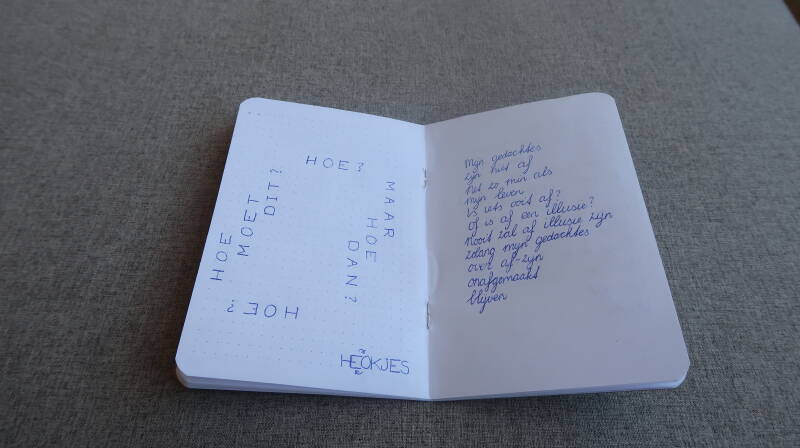 HOE?
MAAR
HOE
DAN?
HOE?
HOE
MOET
DIT?
HEOKJES
Mijn gedachtes
zijn niet af
net zo min als
mijn leven
Is iets ooit af?
Of is af een illusie?
Nooit zal af illusie zijn
zolang mijn gedachtes
over af-zijn
onafgemaakt
blijven